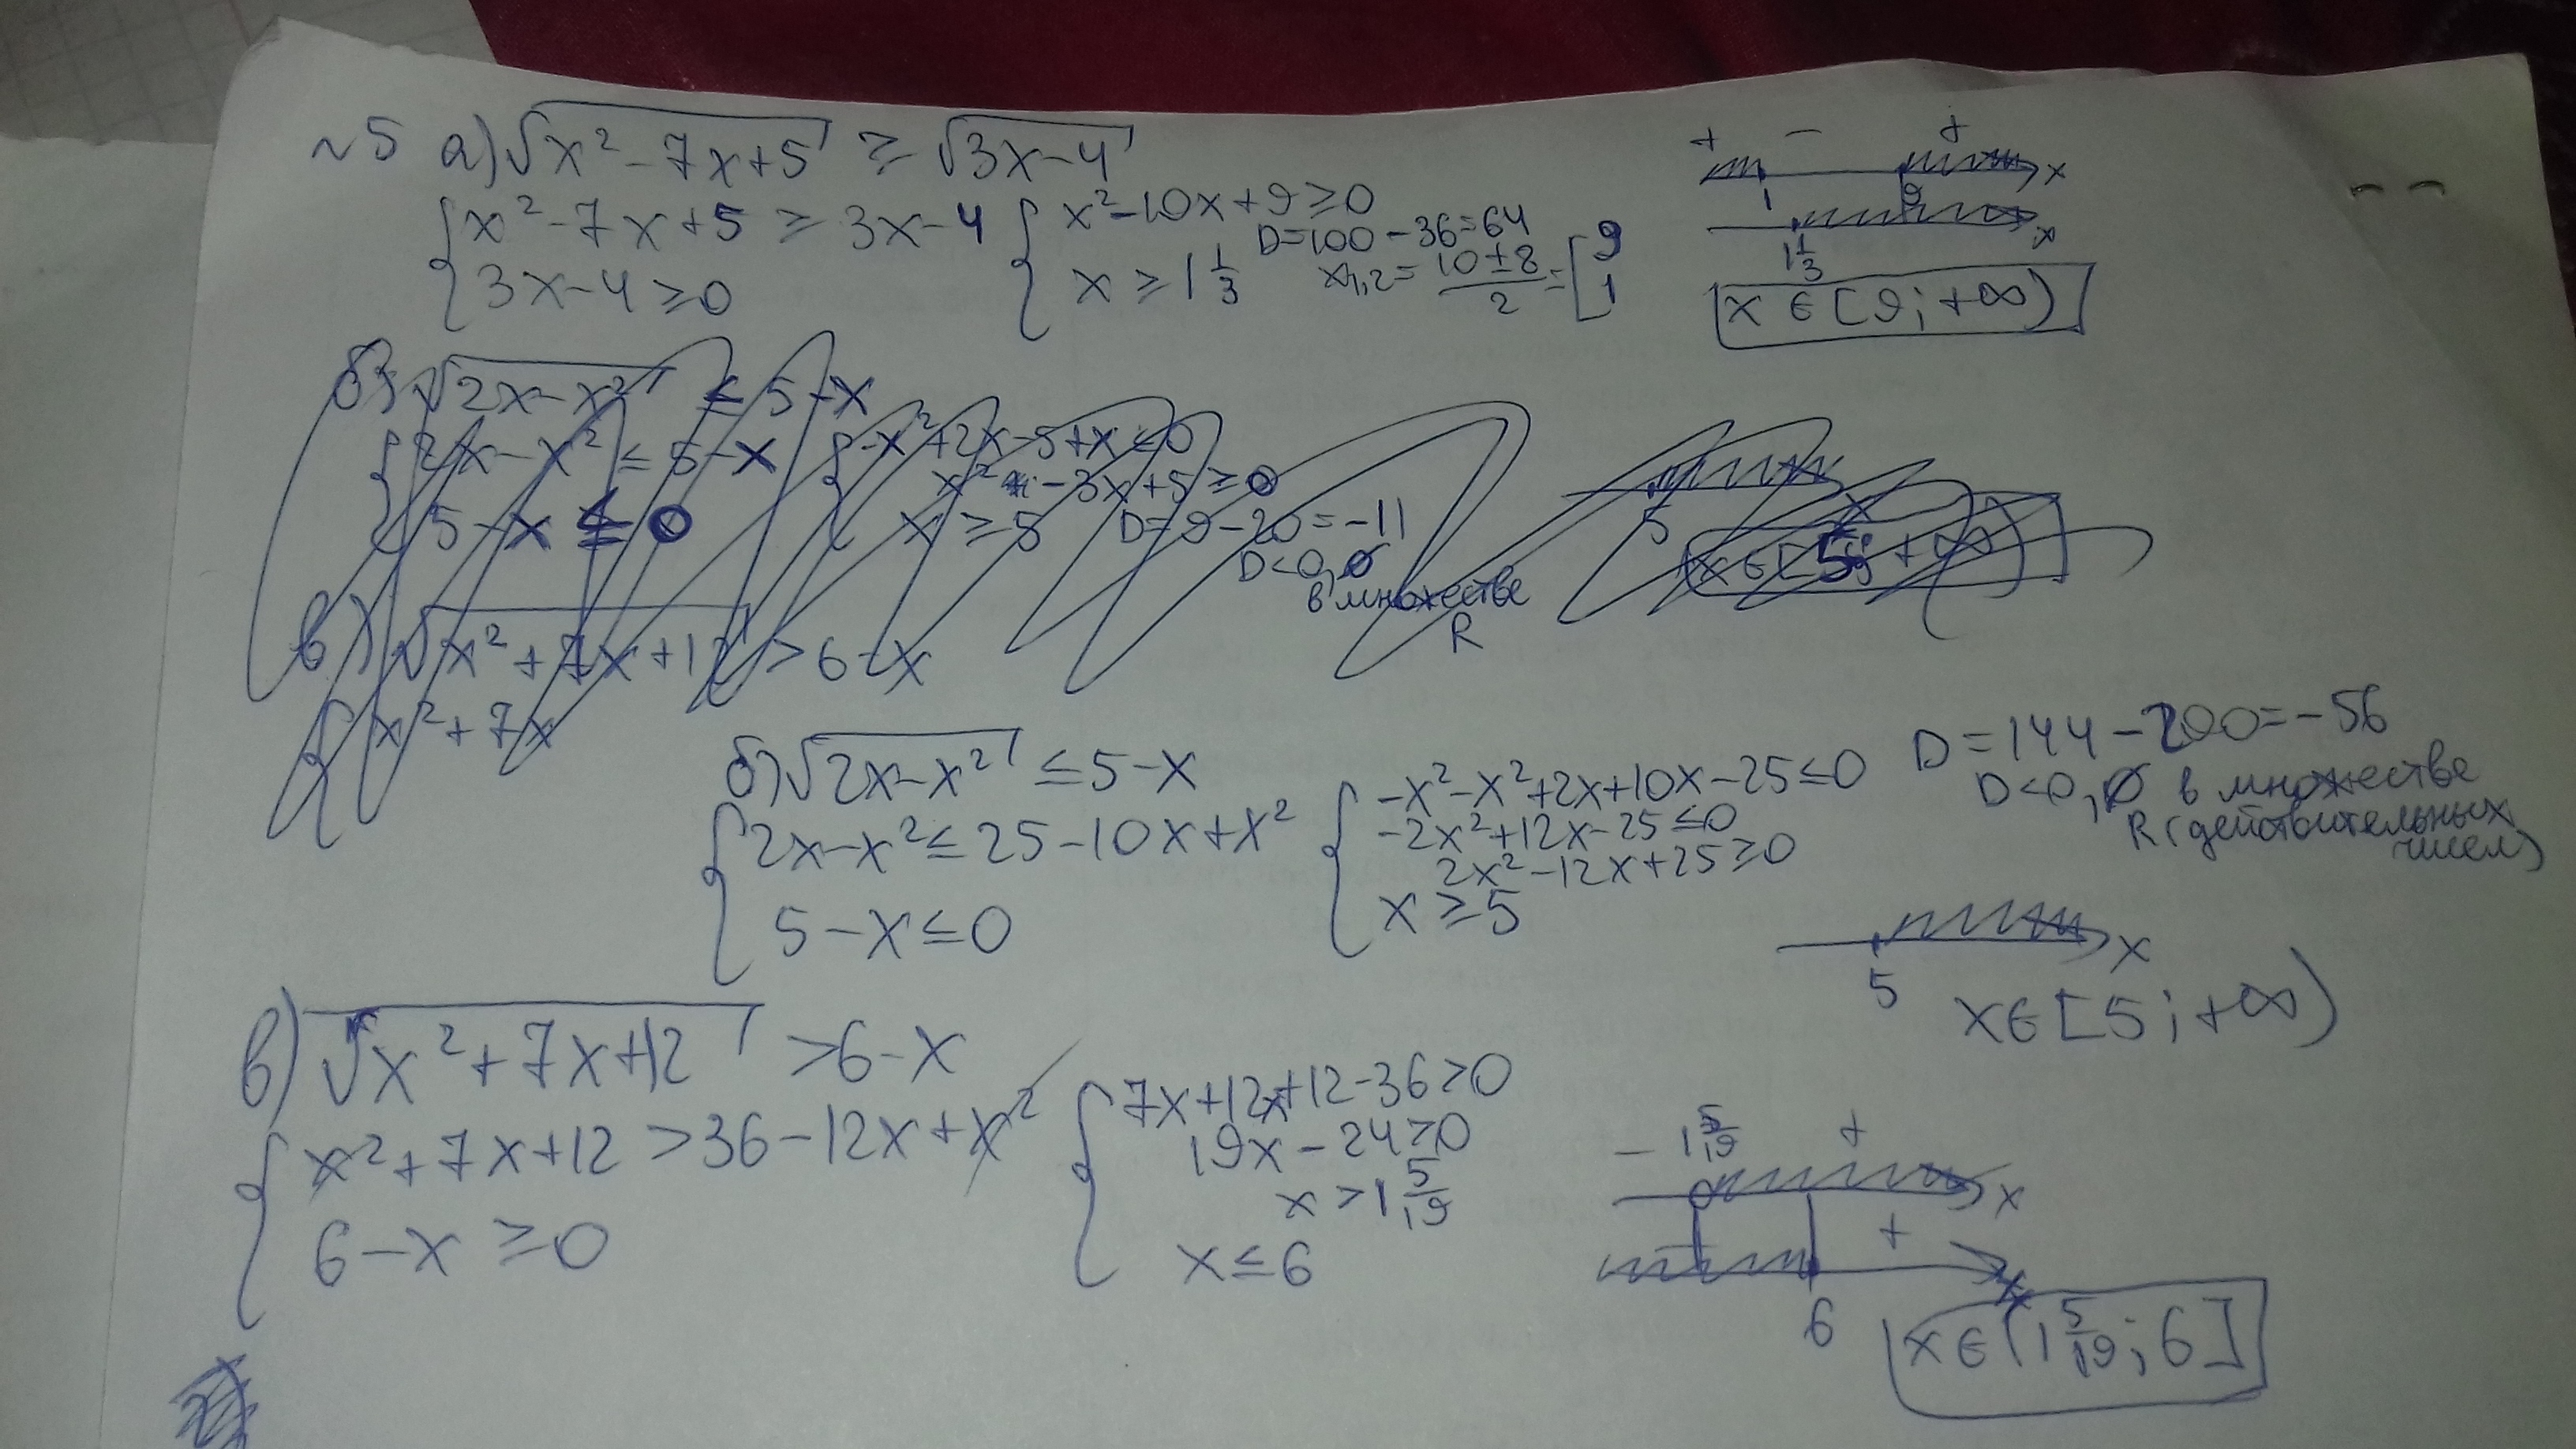 №5 а) √(x²-7x+5) ≥ √(3x-4)
{ x²-7x+5 ≥ 3x-4 { x²-10x+9≥0
3x-4≥0 x ≥ 1 1/3
D=100-36=64
x1,2 = (10±8)/2 = [ 9 1
+ - + x
1 9
x
1 1/3
x ∈ [9; +∞)
б) √(2x-x²) ≤ 5-x
{ 2x-x² ≤ 5-x { -x²+2x-5+x≤0
x² -3x+5≥0
5-x ≤ 0 x ≥ 5 D=9-20=-11
D<0, ∅
в множестве
R
5 x
x∈[5; +∞)
в) √(x²+7x+12) > 6-x
{ x²+7x
б) √(2x-x²) ≤ 5-x
{ 2x-x² ≤ 25-10x+x² { -x²-x²+2x+10x-25≤0
-2x²+12x-25≤0
2x²-12x+25≥0
5-x≤0 x ≥ 5
D=144-200=-56
D<0, ∅ в множестве
R (действительных
чисел)
5 x
x∈[5; +∞)
в) √(x²+7x+12) > 6-x
{ x²+7x+12 > 36-12x+x² { 7x+12x+12-36>0
19x-24>0
x > 1 5/19
6-x ≥ 0 x ≤ 6
- 1 5/19 + x
+ x
6
x ∈ (1 5/19; 6]